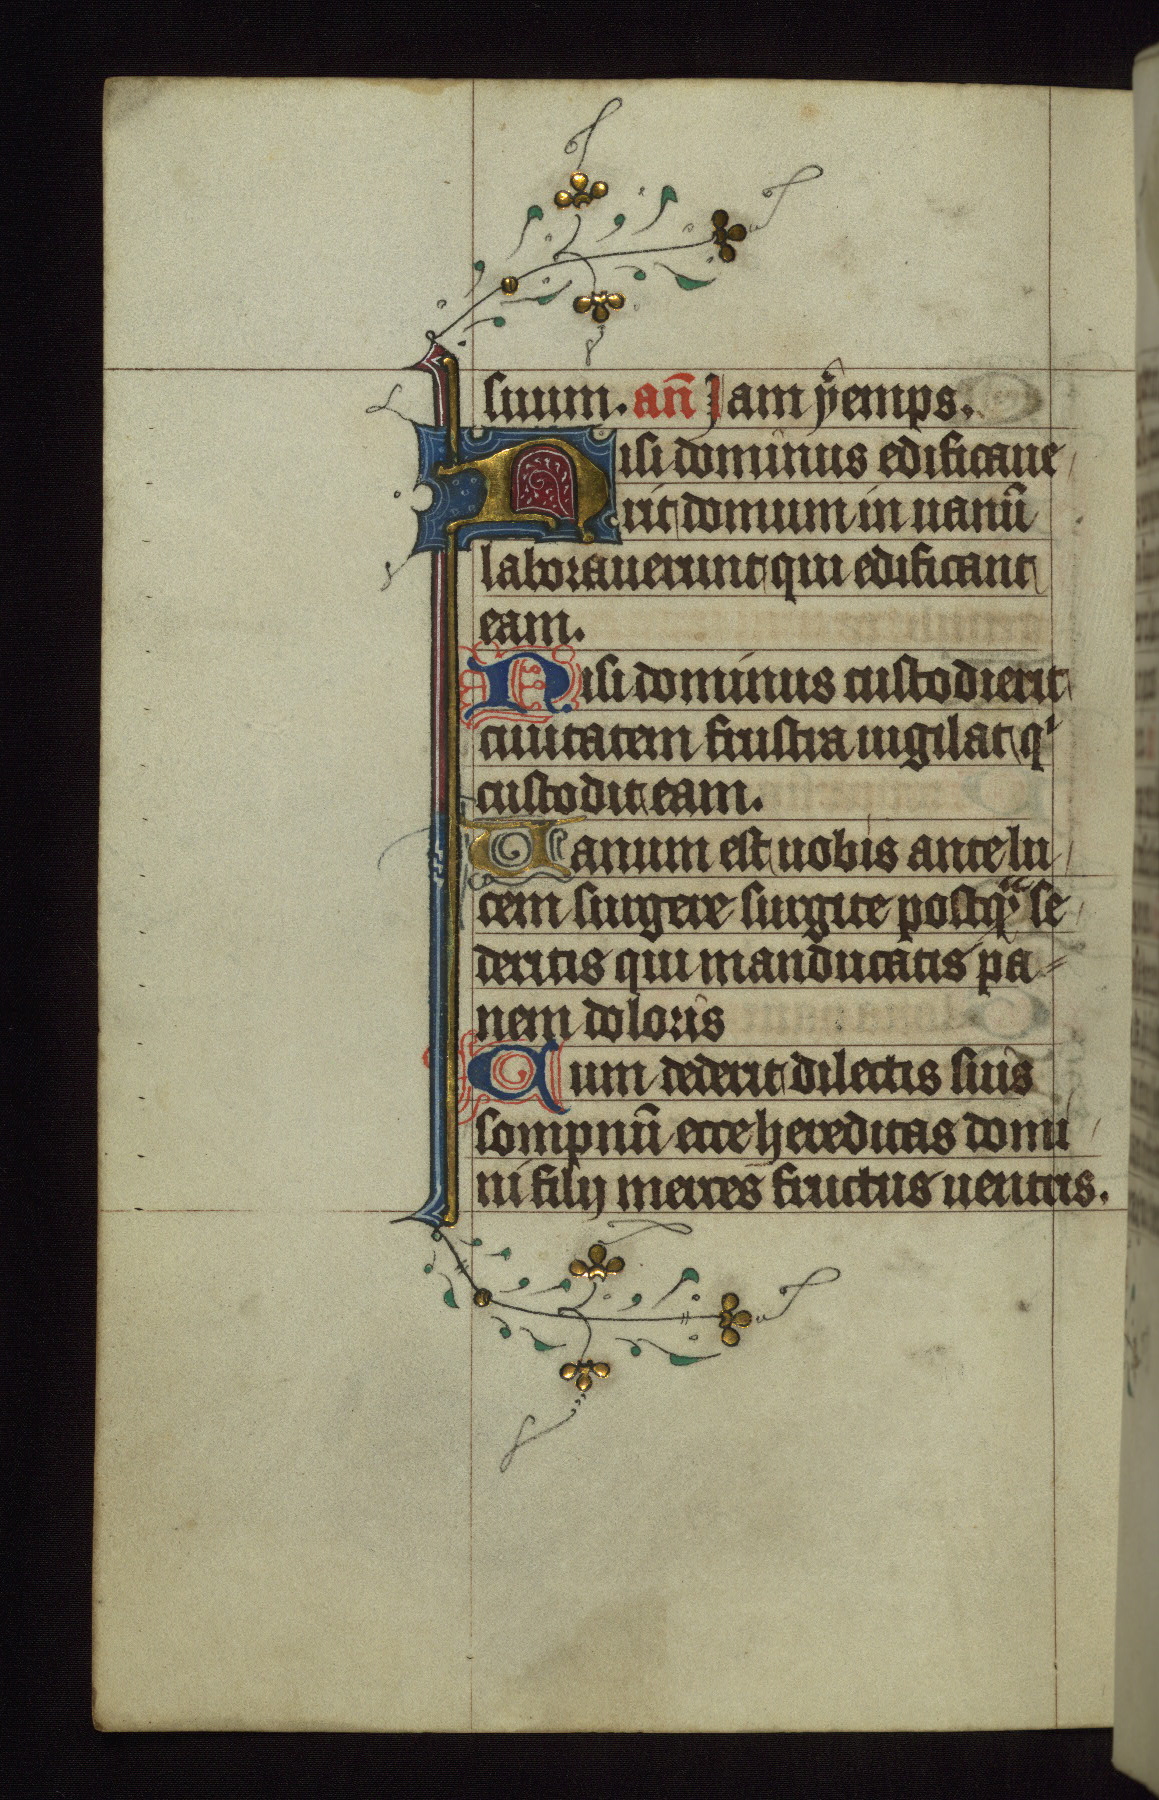 suum. an̄ Jam yemps.
Nisi dominus edificaue
rit domum in uanū
laborauerunt qui edificant
eam.
Nisi dominus custodierit
ciuitatem frustra uigilat qⁱ
custodit eam.
Uanum est uobis ante lu
cem surgere surgite postqᵃ se
deritis qui manducatis pa
nem doloris
Cum dederit dilectis suis
sompnū ecce hereditas domi
ni filij merces fructus uentris.